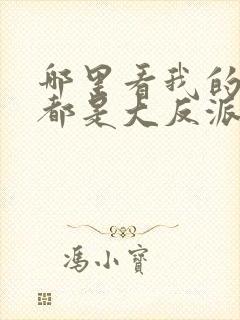 那里看我的
都是大反派
冯小宝